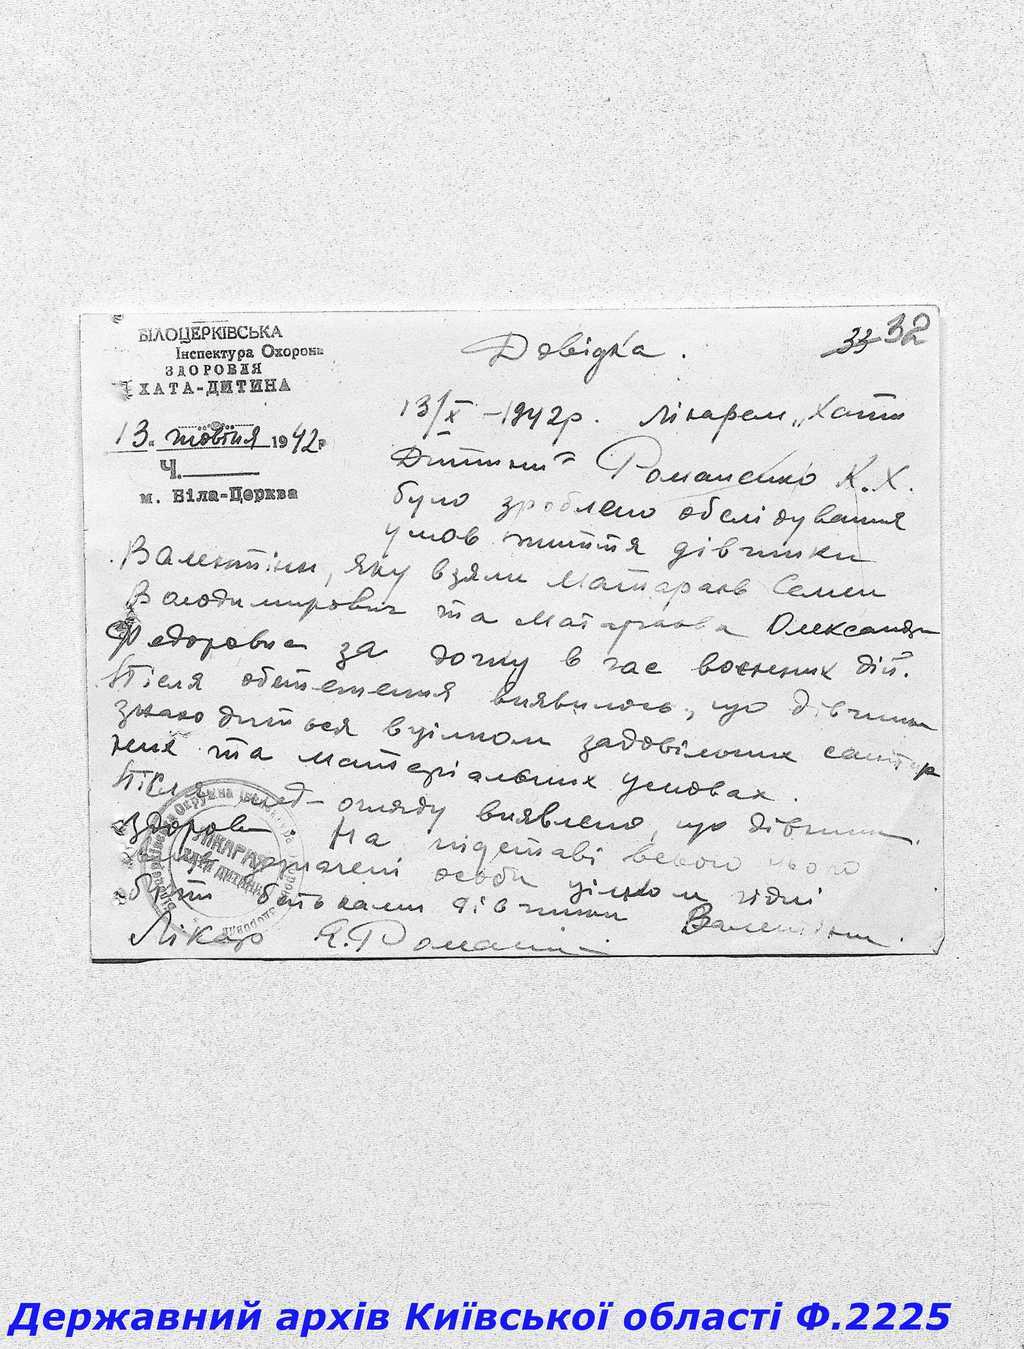 БІЛОЦЕРКІВСЬКА
Інспектура Охорони
ЗДОРОВЛЯ
ХАТА-ДИТИНА
13 жовтня 1942 р
Ч.
м. Біла-Церква
33 32
Довідка.
13/X -1942р. Лікарем „Хати
Дитини" Романенко К.Х.
було зроблено обслідування
умов життя дівчинки
Валентини, яку взяли Семен
Володимирович та Олександра
Федоровна за дочку в час воєнних дій.
Після обстеження виявилось, що дівчинка
знаходиться в цілком задовільних санітар
них та матеріальних умовах.
Після мед-огляду виявлено, що дівчинка
здорова. На підставі всього цього
зазначені особи цілком гідні
бути батьками дівчинки Валентини.
Лікар К.Романен
Державний архів Київської області Ф.2225